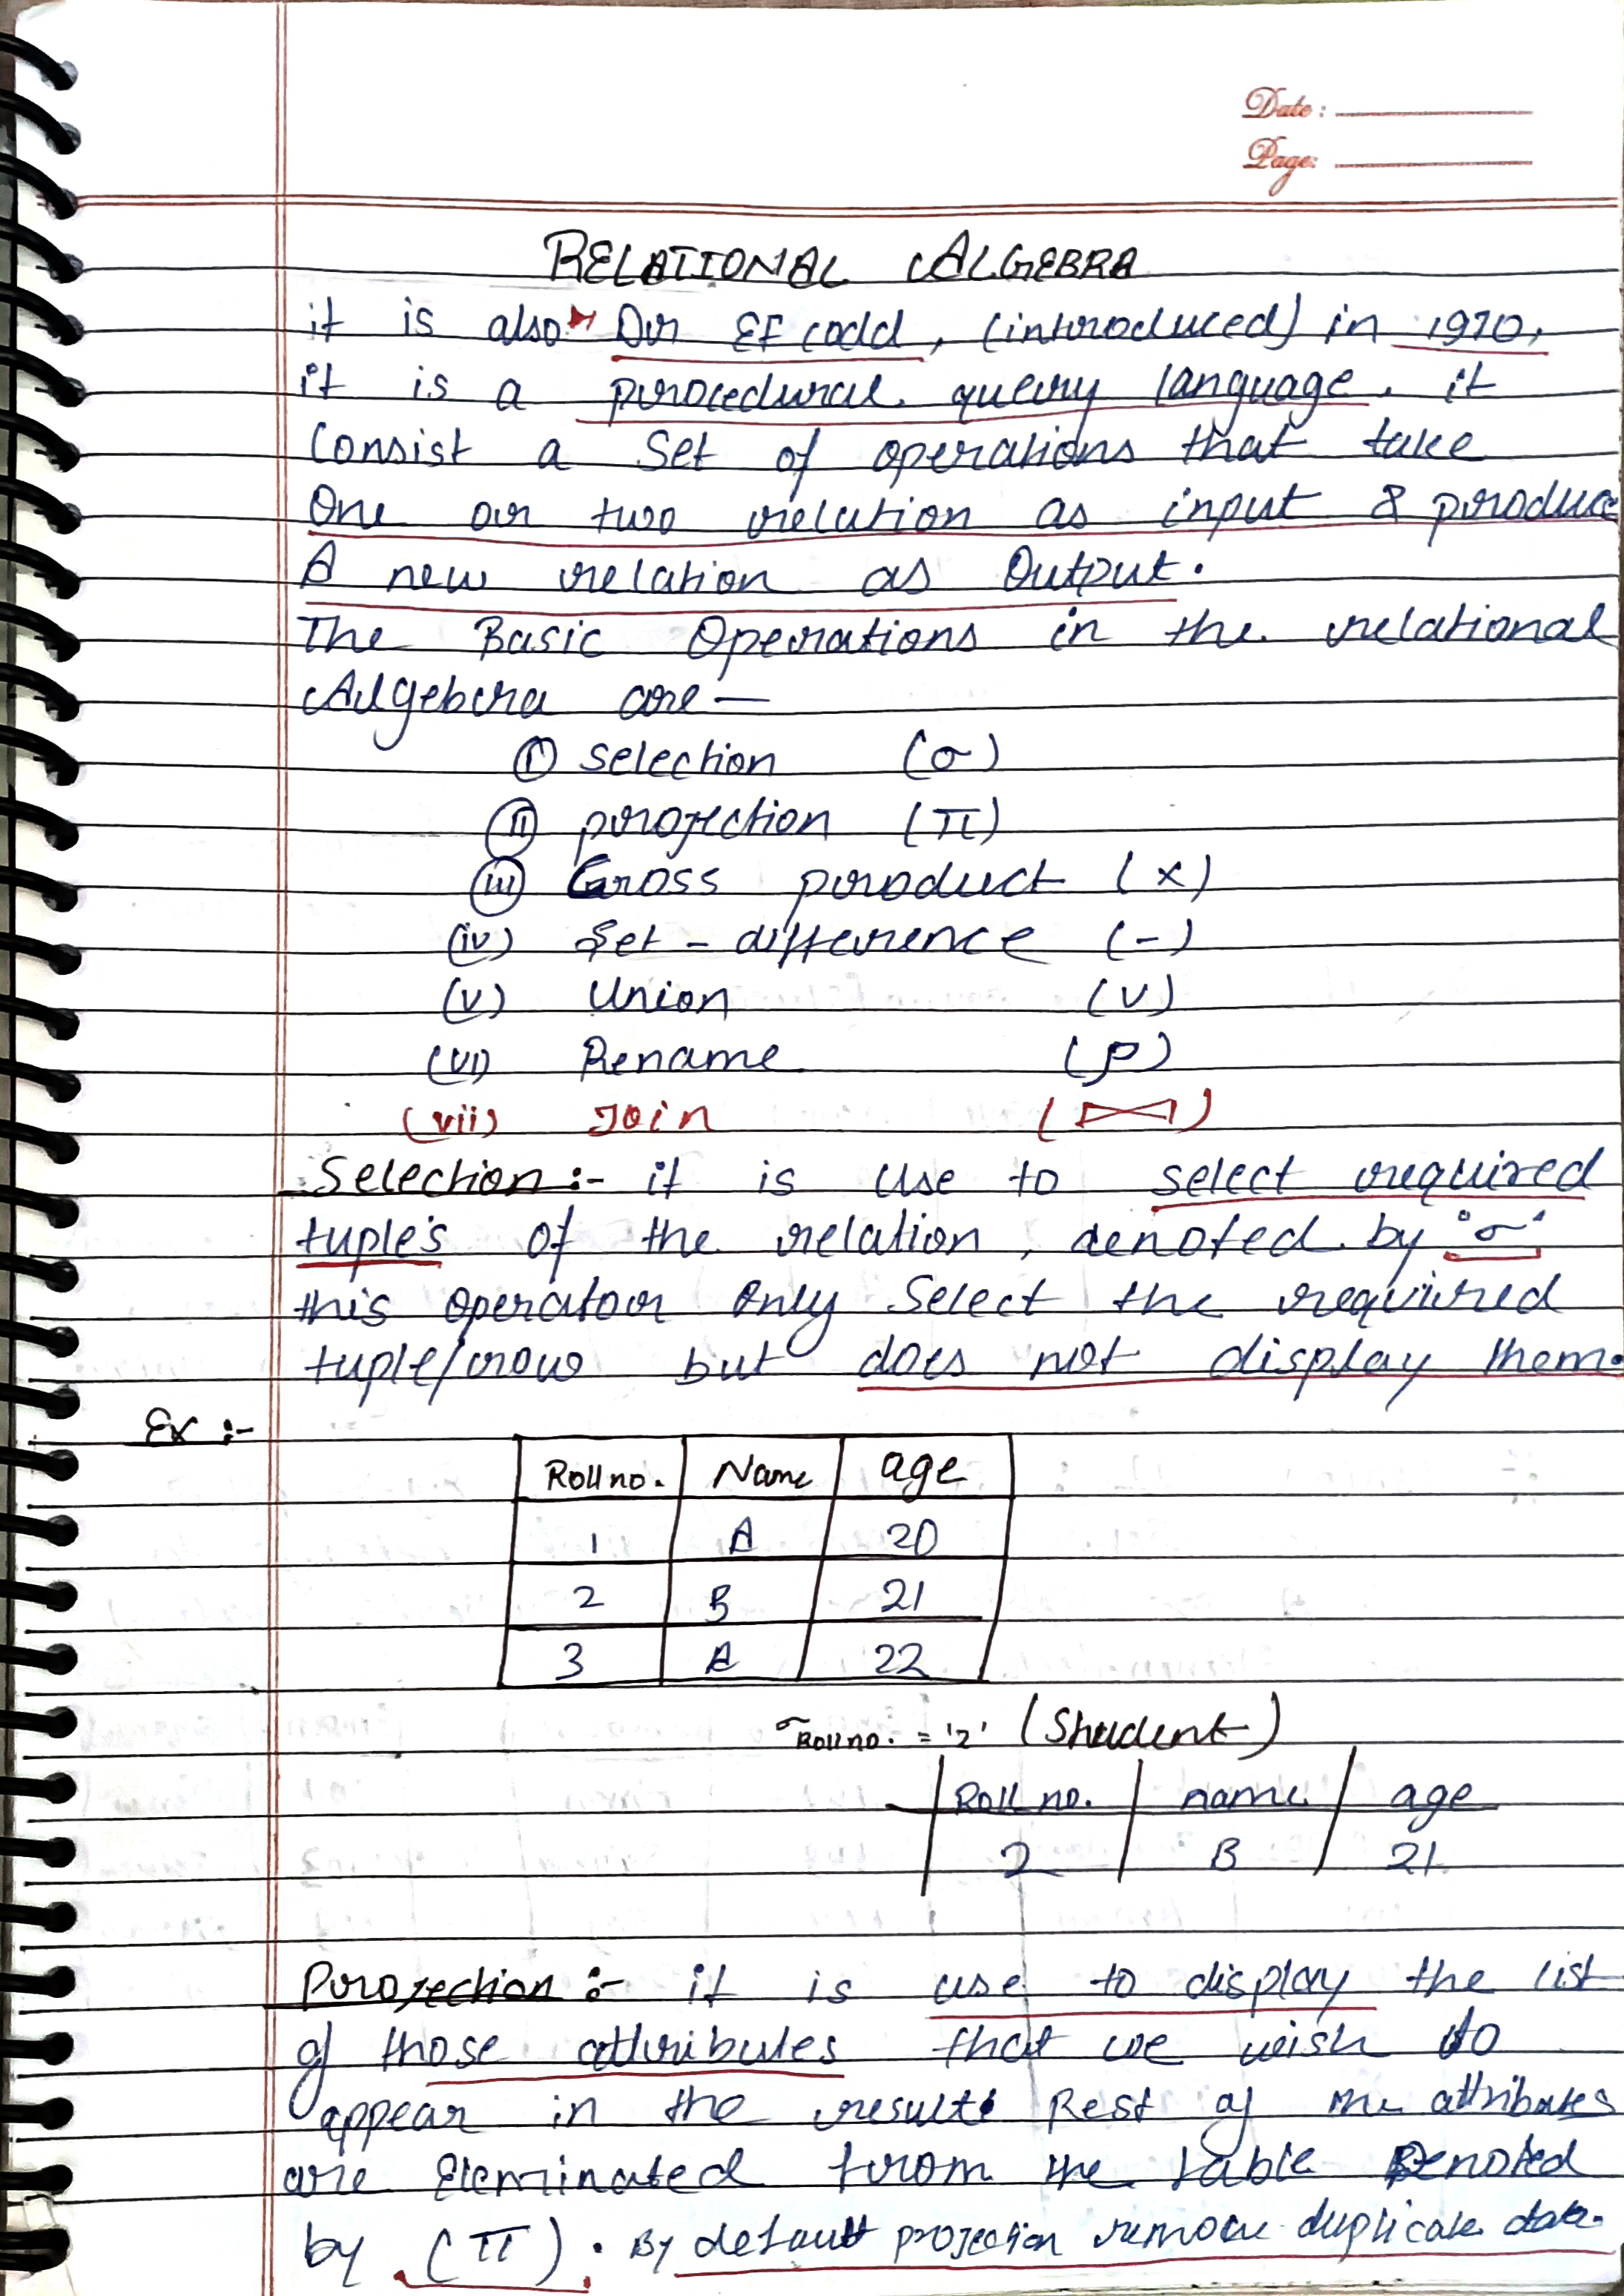 Date :
Page:
RELATIONAL ALGEBRA
it is also Dr EF codd, (introduced) in 1970,
it is a procedural query language. it
Consist a Set of operations that take
One or two relation as input & produce
A new relation as Output.
The Basic Operations in the relational
Algebra are —
(i) Selection (σ)
(ii) projection (π)
(iii) Cross product (×)
(iv) Set - difference (-)
(v) Union (∪)
(vi) Rename (ρ)
(vii) Join (⋈)
Selection :- it is use to select required
tuple's of the relation, denoted by 'σ'
this operator Only Select the required
tuple/row but does not display them.
Ex :-
Roll no. Name age
1 A 20
2 B 21
3 A 22
σ Roll no. = '2' (Student)
Roll no. name age
2 B 21
Projection :- it is use to display the list
of those attributes that we wish to
appear in the result. Rest of the attributes
are Eleminated from the table Denoted
by (π). By default projection remove duplicate data.